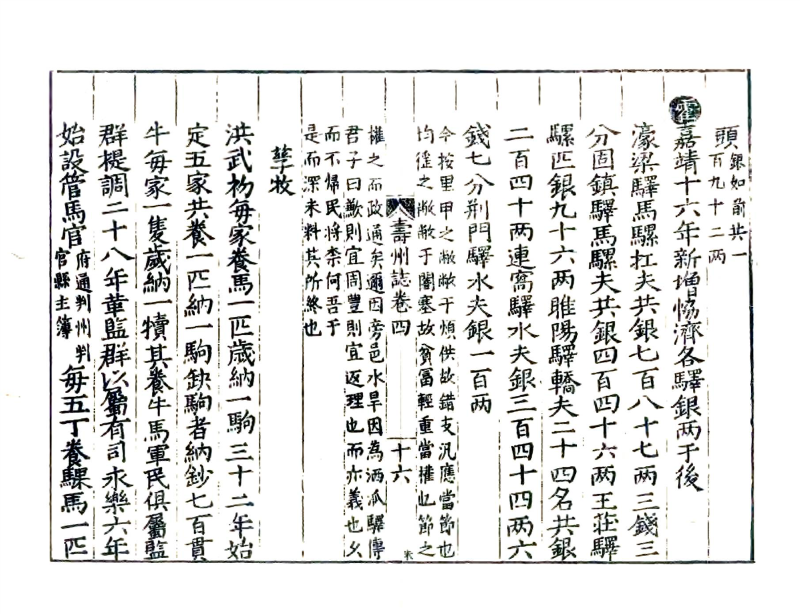 頭銀如前共一
百九十二兩
霍嘉靖十六年新增恊濟各驛銀两于後
濠梁驛馬騾扛夫共銀七百八十七两三錢三
分固鎮驛馬騾夫共銀四百四十六两王莊驛
騾匹銀九十六两睢陽驛轎夫二十四名共銀
二百四十两連窩驛水夫銀三百四十四两六
錢七分荆門驛水夫銀一百两
今按里甲之敝敝于煩供故錯支汎應當節也
均徭之敝敝于闇塞故貧冨輕重當權也節之
壽州誌卷四
十六
權之而政通矣邇因旁邑水旱因為洒瓜驛傳
君子曰歉則宜周豐則宜返理也而亦義也乆
而不歸民將柰何吾于
是而深未料其所終也
孳牧
洪武初每家養馬一匹歳納一駒三十二年始
定五家共養一匹納一駒缺駒者納鈔七百貫
牛每家一隻歲納一犢其養牛馬軍民俱屬監
群提調二十八年革監群以屬有司永樂六年
始設管馬官府通判州判
官縣主簿每五丁養騍馬一匹